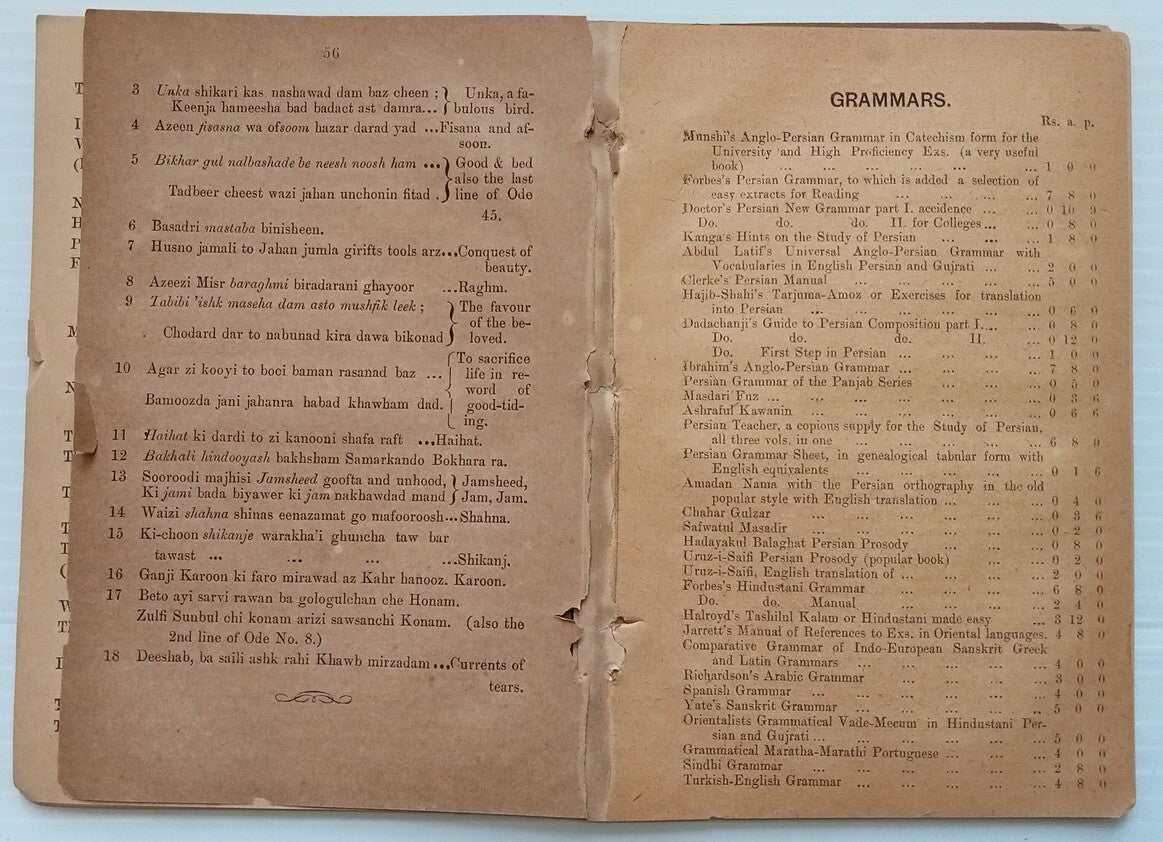 56
3 Unka shikari kas nashawad dam baz cheen ; } Unka, a fa-
Keenja hameesha bad badact ast damra... } bulous bird.
4 Azeen fisasna wa ofsoom hazar darad yad ...Fisana and af-
soon.
5 Bikhar gul nalbashade be neesh noosh ham ... } Good & bed
also the last
Tadbeer cheest wazi jahan unchonin fitad . } line of Ode
45.
6 Basadri mastaba binisheen.
7 Husno jamali to Jahan jumla girifts tools arz...Conquest of
beauty.
8 Azeezi Misr baraghmi biradarani ghayoor ...Raghm.
9 Tabibi 'ishk maseha dam asto mushfik leek ; } The favour
of the be-
Chodard dar to nabunad kira dawa bikonad } loved.
{ To sacrifice
10 Agar zi kooyi to boci baman rasanad baz ... life in re-
word of
Bamoozda jani jahanra habad khawham dad. good-tid-
ing.
11 Haihat ki dardi to zi kanooni shafa raft ...Haihat.
12 Bakhali hindooyash bakhsham Samarkando Bokhara ra.
13 Sooroodi majhisi Jamsheed goofta and unhood, } Jamsheed,
Ki jami bada biyawer ki jam nakhawdad mand } Jam, Jam.
14 Waizi shahna shinas eenazamat go mafooroosh...Shahna.
15 Ki-choon shikanje warakha'i ghuncha taw bar
tawast ... ... ...Shikanj.
16 Ganji Karoon ki faro mirawad az Kahr hanooz. Karoon.
17 Beto ayi sarvi rawan ba gologulchan che Honam.
Zulfi Sunbul chi konam arizi sawsanchi Konam. (also the
2nd line of Ode No. 8.)
18 Deeshab, ba saili ashk rahi Khawb mirzadam ...Currents of
tears.
GRAMMARS.
Rs. a. p.
Munshi's Anglo-Persian Grammar in Catechism form for the
University and High Proficiency Exs. (a very useful
book) ... ... ... ... ... ... 1 0 0
Forbes's Persian Grammar, to which is added a selection of
easy extracts for Reading ... ... ... ... 7 8 0
Doctor's Persian New Grammar part I. accidence ... ... 0 10 9
Do. do. do. II. for Colleges ... ... 0 8 0
Kanga's Hints on the Study of Persian ... ... ... 1 8 0
Abdul Latif's Universal Anglo-Persian Grammar with
Vocabularies in English Persian and Gujrati ... ... 2 0 0
Clerke's Persian Manual ... ... ... ... ... 5 0 0
Hajib-Shahi's Tarjuma-Amoz or Exercises for translation
into Persian ... ... ... ... ... 0 6 0
Dadachanji's Guide to Persian Composition part I.... ... 0 8 0
Do. do. do. II. ... 0 12 0
Do. First Step in Persian ... ... ... 1 0 0
Ibrahim's Anglo-Persian Grammar ... ... ... ... 7 8 0
Persian Grammar of the Panjab Series ... ... ... 0 5 0
Masdari Fuz ... ... ... ... ... ... 0 3 6
Ashraful Kawanin ... ... ... ... ... ... 0 6 6
Persian Teacher, a copious supply for the Study of Persian,
all three vols. in one ... ... ... ... ... 6 8 0
Persian Grammar Sheet, in genealogical tabular form with
English equivalents ... ... ... ... ... 0 1 6
Amadan Nama with the Persian orthography in the old
popular style with English translation ... ... ... 0 4 0
Chahar Gulzar ... ... ... ... ... 0 3 6
Safwatul Masadir ... ... ... ... ... 0 2 0
Hadayakul Balaghat Persian Prosody ... ... ... 0 8 0
Uruz-i-Saifi Persian Prosody (popular book) ... ... 0 2 0
Uruz-i-Saifi, English translation of ... ... ... ... 2 0 0
Forbes's Hindustani Grammar ... ... ... ... 6 8 0
Do. do. Manual ... ... ... ... 2 4 0
Halroyd's Tashilul Kalam or Hindustani made easy ... 3 12 0
Jarrett's Manual of References to Exs. in Oriental languages. 4 8 0
Comparative Grammar of Indo-European Sanskrit Greek
and Latin Grammars ... ... ... ... ... 4 0 0
Richardson's Arabic Grammar ... ... ... ... 3 0 0
Spanish Grammar ... ... ... ... ... 4 0 0
Yate's Sanskrit Grammar ... ... ... ... .. 5 0 0
Orientalists Grammatical Vade-Mecum in Hindustani Per-
sian and Gujrati ... ... ... ... ... ... 5 0 0
Grammatical Maratha-Marathi Portuguese ... ... ... 4 0 0
Sindhi Grammar ... ... ... ... ... 2 8 0
Turkish-English Grammar ... ... ... ... 4 8 0